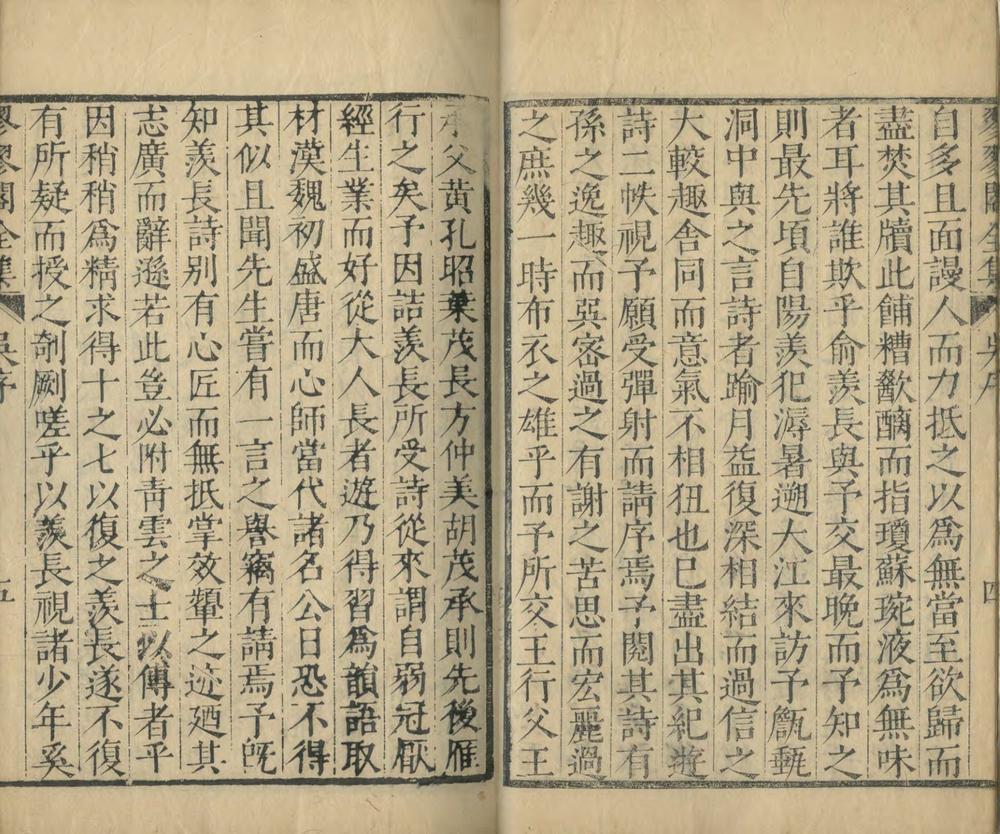 自多且面謾人而力抵之以爲無當至欲歸而
盡焚其牘此餔糟歠醨而指瓊蘇琬液爲無味
者耳將誰欺乎俞羨長與予交最晚而予知之
則最先頃自陽羨犯溽暑遡大江來訪予甔甀
洞中與之言詩者踰月益復深相結而過信之
大較趣舎同而意氣不相狃也巳盡出其紀遊
詩二帙視予願受彈射而請序焉予閱其詩有
孫之逸趣而巽宻過之有謝之苦思而宏麗過
之庶幾一時布衣之雄乎而予所交王行父王
承父黃孔昭葉茂長方仲美胡茂承則先後雁
行之矣予因詰羨長所受詩從來謂自弱冠厭
經生業而好從大人長者遊乃得習爲韻語取
材漢魏初盛唐而心師當代諸名公日恐不得
其似且聞先生嘗有一言之譽竊有請焉予旣
知羨長詩别有心匠而無抵掌效顰之迹廼其
志廣而辭遜若此豈必附靑雲之士以傳者乎
因稍稍爲精求得十之七以復之羨長遂不復
有所疑而授之剞劂嗟乎以羨長視諸少年奚
寥寥閣全集
吳序
五